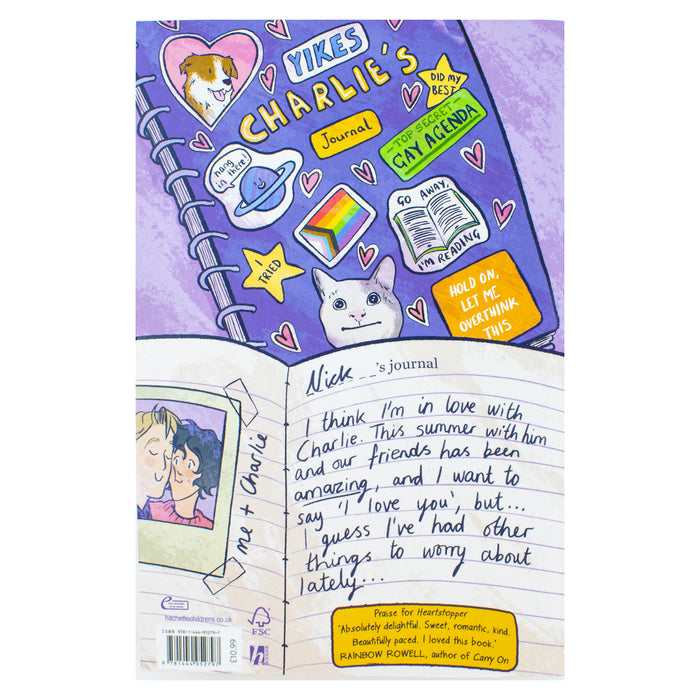 YIKES
CHARLIE'S
Journal
DID MY
BEST
TOP SECRET
GAY AGENDA
hang
in there!
GO AWAY,
I'M READING
I
TRIED
HOLD ON,
LET ME
OVERTHINK
THIS
Nick's journal
I think I'm in love with
Charlie. This summer with him
and our friends has been
amazing, and I want to
say 'I love you', but...
I guess I've had other
things to worry about
lately...
me + Charlie
Praise for Heartstopper
'Absolutely delightful. Sweet, romantic, kind.
Beautifully paced. I loved this book.'
RAINBOW ROWELL, author of Carry On
hachettechildrens.co.uk
ISBN 978-1-444-95279-7
9 781444 952797
FSC